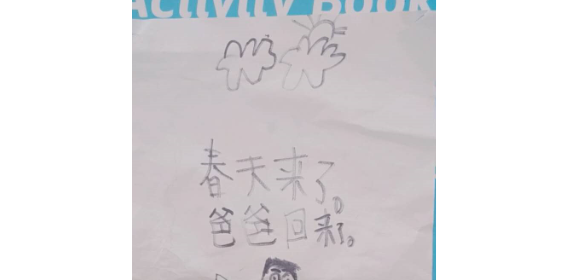 Activity Book
春天来了。
爸爸回来了。